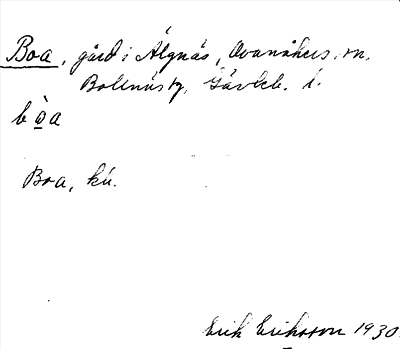 Boa, gård i Älgnäs, Ovanåkers sn.
Bollnäs tg, Gävleb. l.
bòa
Boa, hú.
Erik Eriksson 1930.